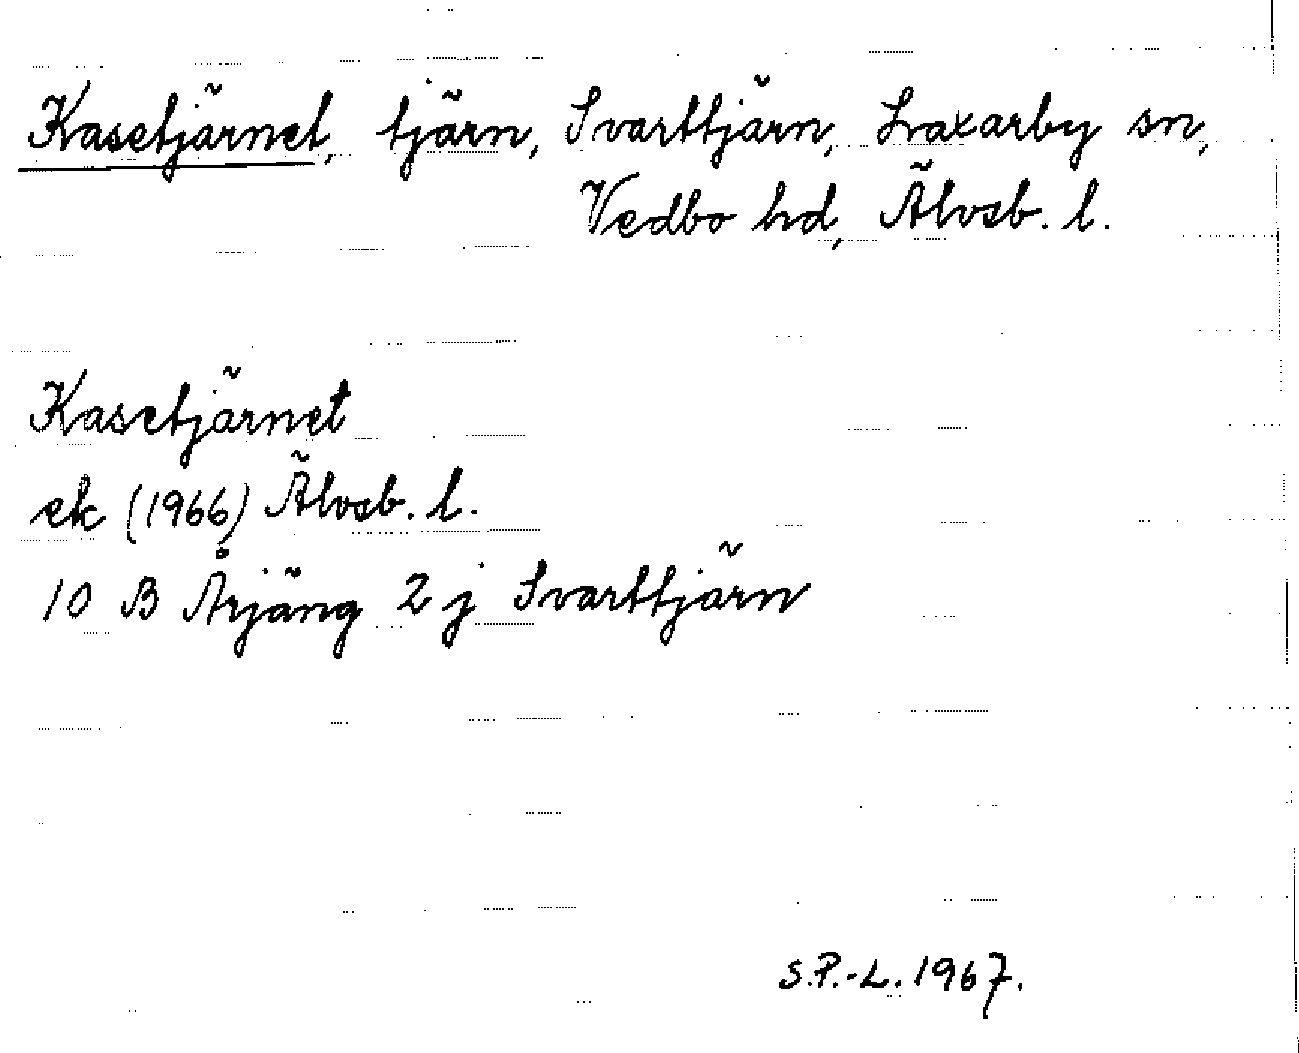 Kasetjärnet, tjärn, Svarttjärn, Laxarby sn,
Vedbo hd, Älvsb. l.
Kasetjärnet
ek (1966) Älvsb. l.
10 B Årjäng 2 j Svarttjärn
S.P.-L. 1967.